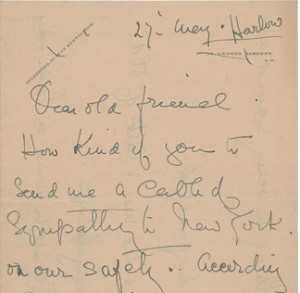 27: May. Harlow
Dear old friend.
How kind of you to
send me a cable of
sympathy to New York.
on our safety.. According